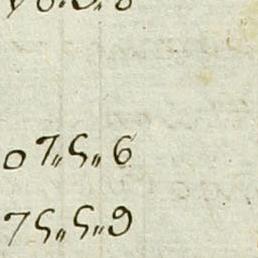 07„5„6
75„5„9